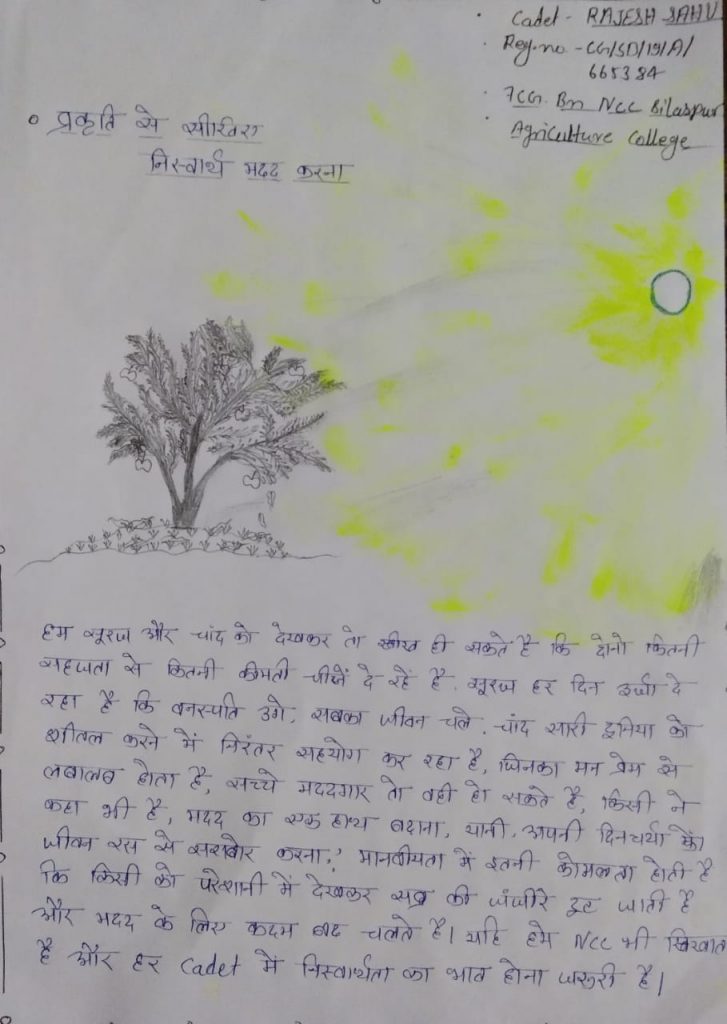 Cadet - RAJESH SAHU
Reg.no - CG/SD/19/A/
665384
7 CG. Bn NCC Bilaspur
Agriculture College
प्रकृति से सीखिए
निस्वार्थ मदद करना
हम सूरज और चांद को देखकर तो सीख ही सकते है कि दोनो कितनी
सहजता से कितनी कीमती चीजें दे रहें है. सूरज हर दिन उर्जा दे
रहा है कि वनस्पति उगे, सबका जीवन चले. चांद सारी दुनिया को
शीतल करने में निरंतर सहयोग कर रहा है, जिनका मन प्रेम से
लबालब होता है, सच्चे मददगार तो वही हो सकते है, किसी ने
कहा भी है, मदद का एक हाथ बढाना, यानी, अपनी दिनचर्या को
जीवन रस से सराबोर करना,' मानवीयता में इतनी कोमलता होती है
कि किसी को परेशानी में देखकर सब्र की जंजीरे टूट जाती है
और मदद के लिए कदम बढ चलते है। यहि हमे NCC भी सिखाता
है और हर Cadet में निस्वार्थता का भाव होना जरूरी है।